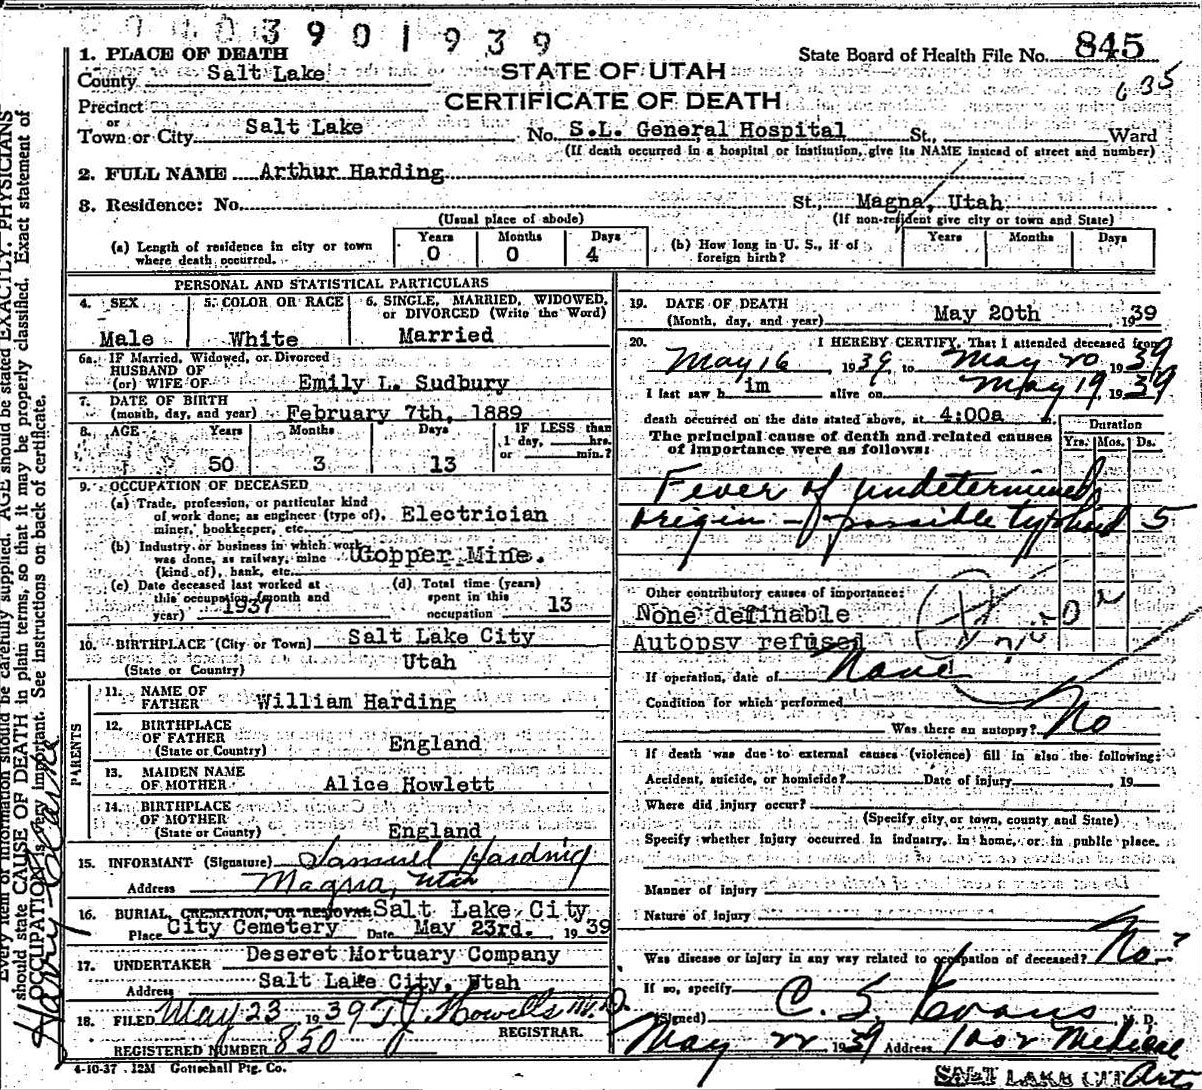 0403901939
1. PLACE OF DEATH
State Board of Health File No. 845
County Salt Lake
STATE OF UTAH
635
Precinct
CERTIFICATE OF DEATH
or
Town or City Salt Lake No. S.L. General Hospital St., Ward
(If death occurred in a hospital or institution, give its NAME instead of street and number)
2. FULL NAME Arthur Harding
3. Residence: No. St., Magna, Utah
(Usual place of abode) (If non-resident give city or town and State)
(a) Length of residence in city or town where death occurred. Years 0 Months 0 Days 4
(b) How long in U. S., if of foreign birth? Years Months Days
PERSONAL AND STATISTICAL PARTICULARS
4. SEX Male
5. COLOR OR RACE White
6. SINGLE, MARRIED, WIDOWED, or DIVORCED (Write the Word) Married
6a. IF Married, Widowed, or Divorced
HUSBAND OF
(or) WIFE OF Emily L. Sudbury
7. DATE OF BIRTH
(month, day, and year) February 7th, 1889
8. AGE Years 50 Months 3 Days 13
IF LESS than 1 day, hrs. or min.?
9. OCCUPATION OF DECEASED
(a) Trade, profession, or particular kind
of work done; as engineer (type of), Electrician
miner, bookkeeper, etc.
(b) Industry or business in which work
was done, as railway, mine Copper Mine.
(kind of), bank, etc.
(c) Date deceased last worked at
this occupation (month and
year) 1937
(d) Total time (years)
spent in this
occupation 13
10. BIRTHPLACE (City or Town) Salt Lake City
(State or Country) Utah
PARENTS
11. NAME OF
FATHER William Harding
12. BIRTHPLACE
OF FATHER
(State or Country) England
13. MAIDEN NAME
OF MOTHER Alice Howlett
14. BIRTHPLACE
OF MOTHER
(State or Country) England
15. INFORMANT (Signature) Samuel Harding
Address Magna, Utah
16. BURIAL, CREMATION, OR REMOVAL Salt Lake City
Place City Cemetery Date May 23rd. 1939
17. UNDERTAKER Deseret Mortuary Company
Address Salt Lake City, Utah
18. FILED May 23 1939 T J Howells M.D.
REGISTRAR.
REGISTERED NUMBER 850
4-10-37 . 12M Gottschall Ptg. Co.
19. DATE OF DEATH
(Month, day, and year) May 20th, 1939
20. I HEREBY CERTIFY, That I attended deceased from
May 16 1939, to May 20 1939
I last saw him alive on May 19, 1939
death occurred on the date stated above, at 4:00a m.
The principal cause of death and related causes
of importance were as follows:
Duration
Yrs. Mos. Ds.
Fever of undetermined
origin - possible typhoid 5
Other contributory causes of importance:
None definable
Autopsy refused
If operation, date of None
Condition for which performed
Was there an autopsy? No
If death was due to external causes (violence) fill in also the following:
Accident, suicide, or homicide? Date of injury , 19
Where did injury occur?
(Specify city or town, county and State)
Specify whether injury occurred in industry, in home, or in public place.
Manner of injury
Nature of injury
Was disease or injury in any way related to occupation of deceased? No
If so, specify
(Signed) C. S. Evans M. D.
May 22 1939 Address 1002 Medical
SALT LAKE CITY
Every item of information should be carefully supplied. AGE should be stated EXACTLY. PHYSICIANS
should state CAUSE OF DEATH in plain terms, so that it may be properly classified. Exact statement of
OCCUPATION is very important. See instructions on back of certificate.